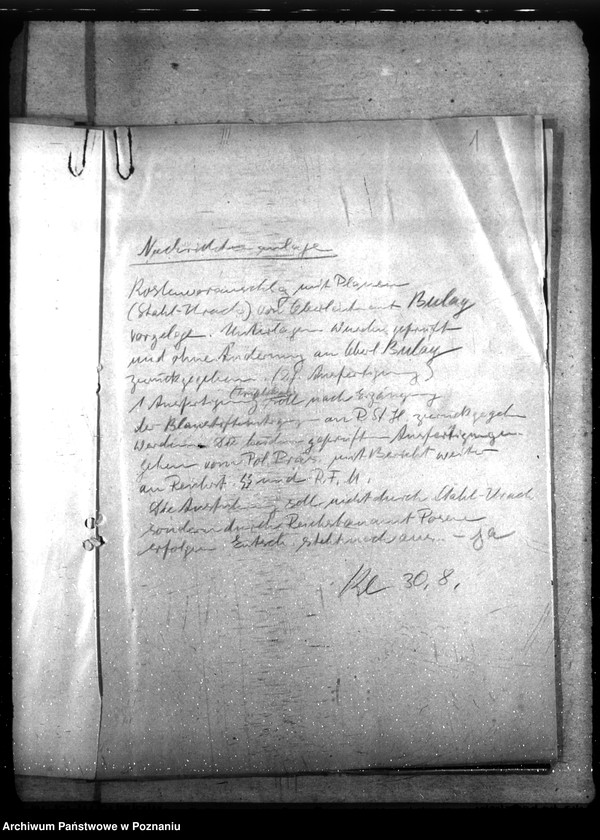 1
Nachrichtenanlage
Kostenvoranschlag mit Plänen
(Stahl-Urach) von Oberleutnant Bulay
vorgelegt. Unterlagen wurden geprüft
und ohne Änderung an Oberl Bulay
zurückgegeben. (2 Ausfertigung)
1 Ausfertigung soll nach Ergänzung
der Blaustifteintragungen an R.St.H. zurückgegeben
werden. Die beiden geprüften Ausfertigungen
gehen vom Pol. Präs. mit Bericht weiter
an Reichsf. SS und R.F.M.
Die Ausführung soll nicht durch Stahl-Urach
sondern durch Reichsbauamt Posen
erfolgen. Entsch. steht noch aus. – ja
30.8.
Archiwum Państwowe w Poznaniu